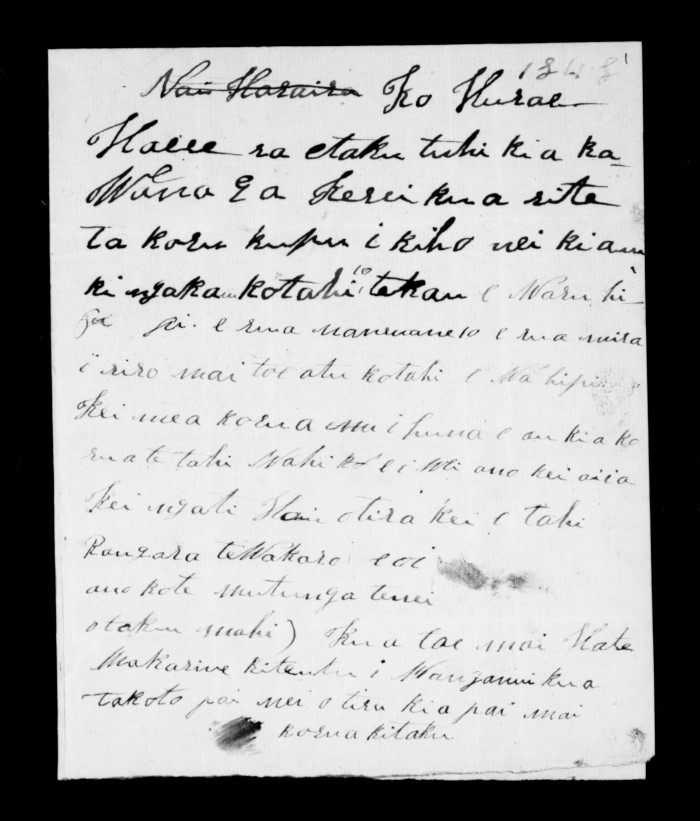 1848
Nau Haraira Ko Hurae
Haere ra etaku tuhi ki a ka
Wana E a Kerei kua rite
ta korua kupu i kiho nei ki au
ki ngaka kotahi 10 tekau e Waru hi
pi. e rua e rua
i riro mai toe atu kotahi e Wa hipi
Kei mea korua i huna e au ki a ko
rua te tahi Wahi ano kei
Kei ngati otira kei e tahi
Rangara teWakaro e oi
ano kote mutunga tenei
otaku mahi) Kua tae mai Hate
Makarine kitentu i Wanganui kua
takoto pai nei otira ki a pai mai
korua kitaku